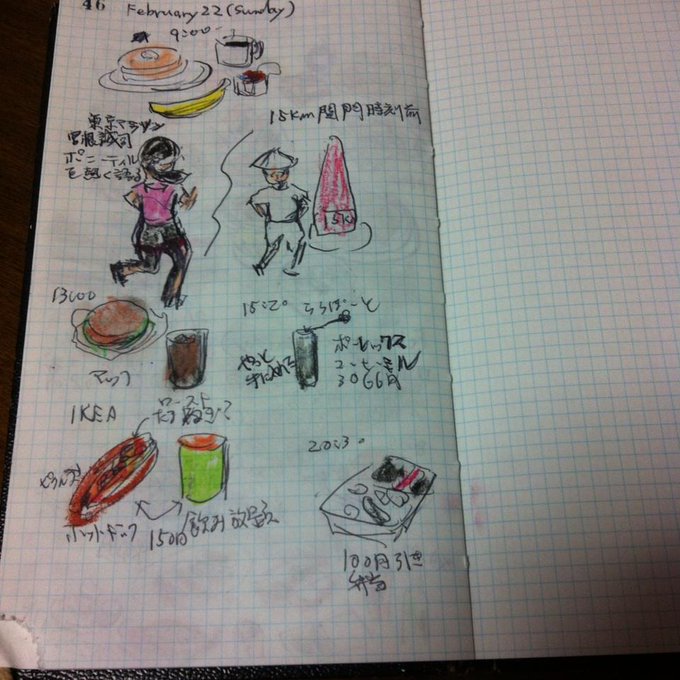 46 February 22 (Sunday)
9:00
15km関門時刻前
東京マラソン
男根誠司
ポニーテイル
を熱く語る
15K
13:00
マック
15:20 ららぽーと
やっと
手に入れる
ポーレックス
コーヒーミル
3066円
IKEA
ロースト
玉ねぎ
ピクルス
ホットドック
150円
飲み放題
20:30
100円引き
弁当